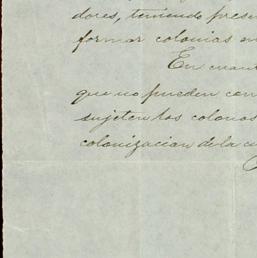 dores, teniendo prese
formar colonias en
En cuan
que no pueden con
sujeten los colonos
colonizacion de la